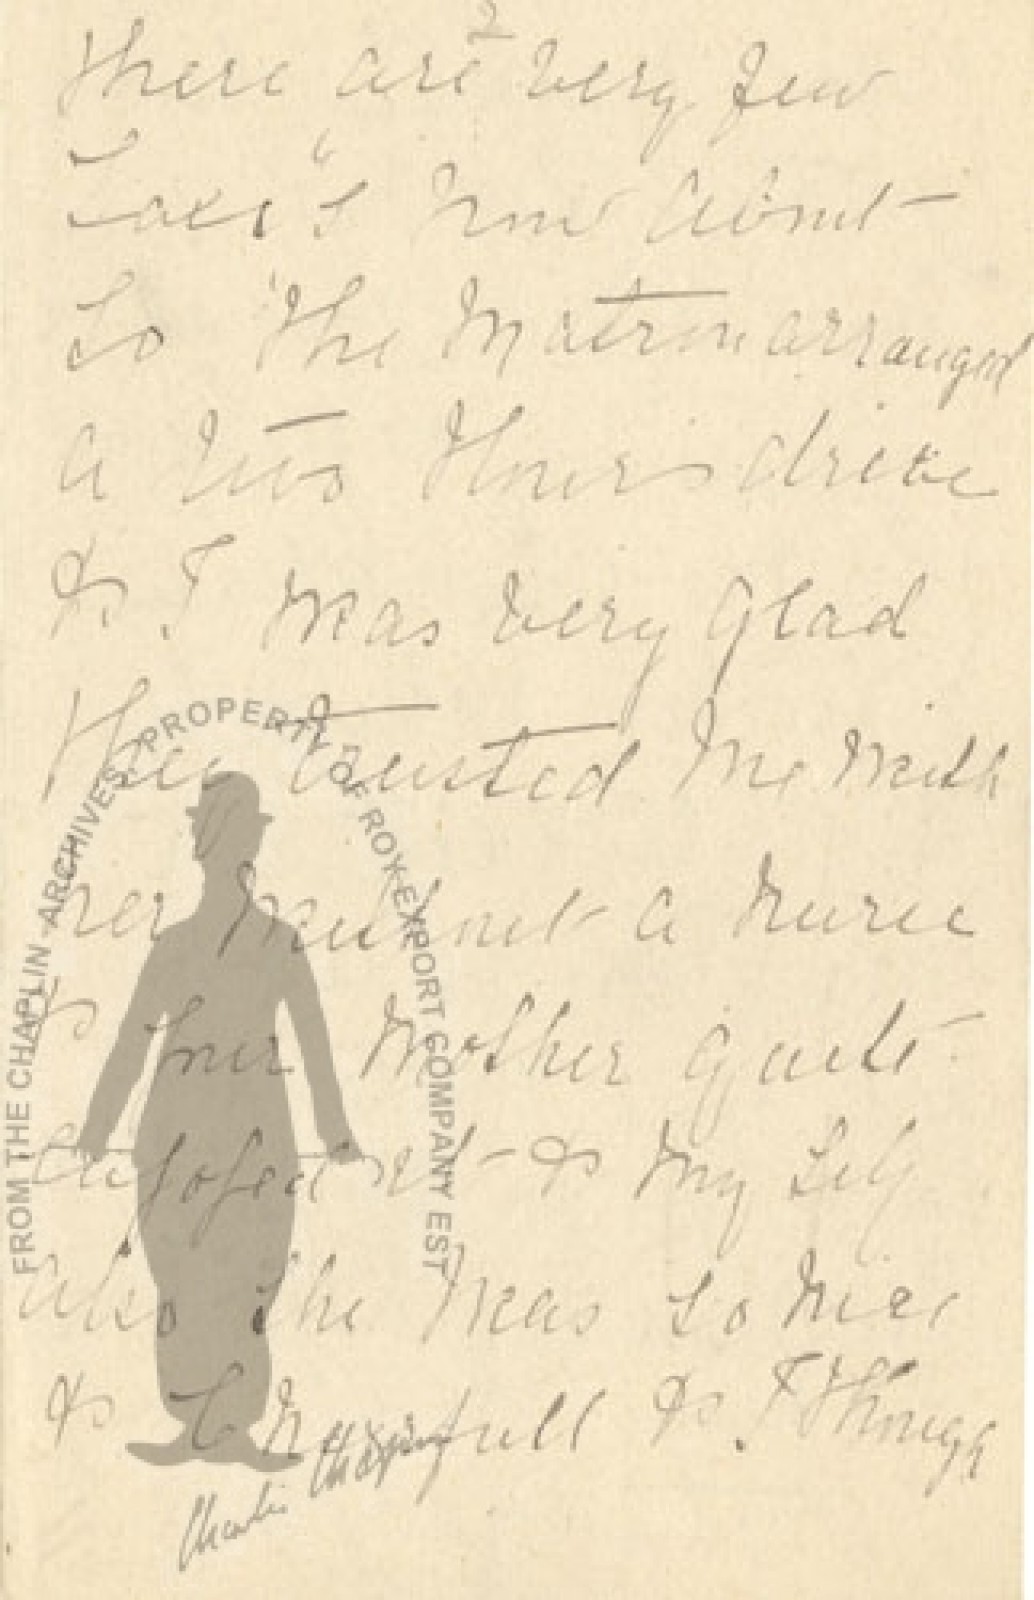 2
there are very few
Taxi"s now about
so the Matron arranged
a two Hours drive
& I was very glad
they trusted me with
her without a Nurse
& your Mother quite
enjoyed it & my self
also she was so nice
& Chearfull & I though
FROM THE CHAPLIN ARCHIVES. PROPERTY OF ROY EXPORT COMPANY EST
Charlie Chaplin